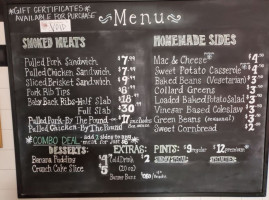 *GIFT CERTIFICATES*
AVAILABLE FOR PURCHASE
Menu
SMOKED MEATS
Pulled Pork Sandwich $7
Pulled Chicken Sandwich $7
Sliced Brisket Sandwich
Pork Rib Tips
Baby Back Ribs-Half Slab $18
Full Slab $30
Pulled Pork-By The Pound $17
Pulled Chicken-By The Pound
COMBO DEAL- add 2 sides to any
HOMEMADE SIDES
Mac & Cheese
Sweet Potato Casserole $4
Baked Beans (Vegetarian) $3
Collard Greens $3
Loaded Baked Potato Salad $3
Vinegar Based Coleslaw $3
Green Beans (seasonal) $3
Sweet Cornbread $2
DESSERTS:
Banana Pudding $4
Crunch Cake Slice $5
EXTRAS:
Add Drink
PINTS: $9 regular $12